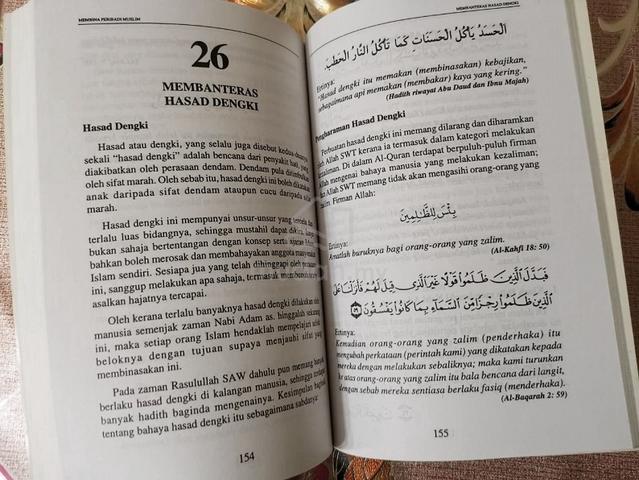 MEMBINA PERIBADI MUSLIM
26
MEMBANTERAS
HASAD DENGKI
Hasad Dengki
Hasad atau dengki, yang selalu juga disebut kedua-duanya
sekali “hasad dengki” adalah bencana dari penyakit hati, yang
diakibatkan oleh perasaan dendam. Dendam pula ditimbulkan
oleh sifat marah. Oleh sebab itu, hasad dengki ini boleh dikatakan
anak daripada sifat dendam ataupun cucu daripada sifat
marah.
Hasad dengki ini mempunyai unsur-unsur yang tercela dan
terlalu luas bidangnya, sehingga mustahil dapat dikira,
bukan sahaja bertentangan dengan konsep serta ajaran Islam
bahkan boleh merosak dan membahayakan anggota masyarakat
Islam sendiri. Sesiapa jua yang telah dihinggapi oleh penyakit
ini, sanggup melakukan apa sahaja, termasuk membunuh
asalkan hajatnya tercapai.
Oleh kerana terlalu banyaknya hasad dengki dilakukan oleh
manusia semenjak zaman Nabi Adam as. hinggalah sekarang
ini, maka setiap orang Islam hendaklah mempelajari selok
beloknya dengan tujuan supaya menjauhi sifat yang
membinasakan ini.
Pada zaman Rasulullah SAW dahulu pun memang banyak
berlaku hasad dengki di kalangan manusia, sehingga terdapat
banyak hadith baginda mengenainya. Kesimpulan baginda
tentang bahaya hasad dengki itu sebagaimana sabdanya:
154
MEMBANTERAS HASAD DENGKI
الْحَسَدُ يَأْكُلُ الْحَسَنَاتِ كَمَا تَأْكُلُ النَّارُ الْحَطَبَ.
Ertinya:
“Hasad dengki itu memakan (membinasakan) kebajikan,
sebagaimana api memakan (membakar) kaya yang kering.”
(Hadith riwayat Abu Daud dan Ibnu Majah)
Pengharaman Hasad Dengki
Perbuatan hasad dengki ini memang dilarang dan diharamkan
oleh Allah SWT kerana ia termasuk dalam kategori melakukan
kezaliman. Di dalam Al-Quran terdapat berpuluh-puluh firman
Allah mengenai bahaya manusia yang melakukan kezaliman;
Allah SWT memang tidak akan mengasihi orang-orang yang
zalim. Firman Allah:
بِئْسَ لِلظَّالِمِينَ
Ertinya:
Amatlah buruknya bagi orang-orang yang zalim.
(Al-Kahfi 18: 50)
فَبَدَّلَ الَّذِينَ ظَلَمُوا قَوْلًا غَيْرَ الَّذِي قِيلَ لَهُمْ فَأَنزَلْنَا عَلَى
الَّذِينَ ظَلَمُوا رِجْزًا مِّنَ السَّمَاءِ بِمَا كَانُوا يَفْسُقُونَ ﴿٥٩﴾
Ertinya:
Kemudian orang-orang yang zalim (penderhaka) itu
mengubah perkataan (perintah kami) yang dikatakan kepada
mereka dengan melakukan sebaliknya; maka kami turunkan
ke atas orang-orang yang zalim itu bala bencana dari langit,
dengan sebab mereka sentiasa berlaku fasiq (menderhaka).
(Al-Baqarah 2: 59)
155